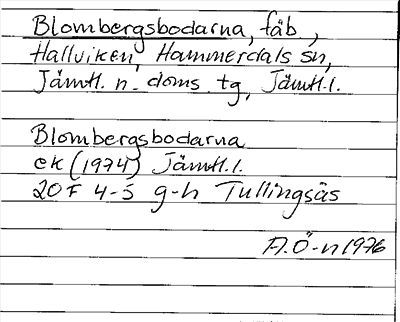 Blombergsbodarna, fäb,
Hallviken, Hammerdals sn,
Jämtl. n. doms. tg, Jämtl. l.
Blombergsbodarna
ek (1974) Jämtl. l.
20F 4-5 g-h Tullingsås
A.Ö-n 1976